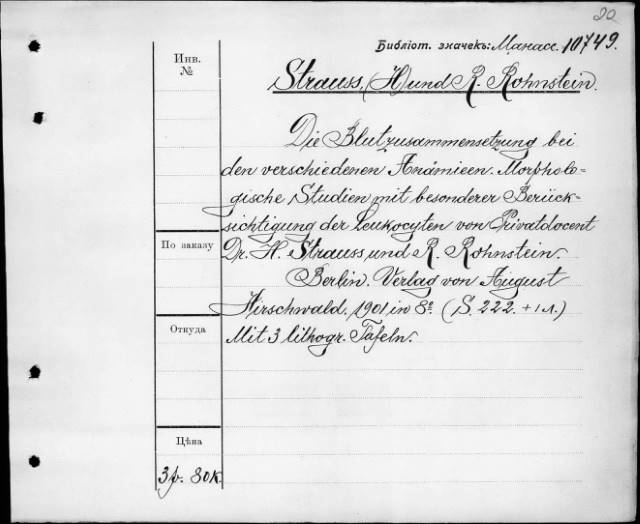 20
Библіот. значекъ: Манасс. 10749.
Инв.
№
Strauss, (H) und R. Rohnstein.
Die Blutzusammensetzung bei
den verschiedenen Anämieen. Morpholo-
gische Studien mit besonderer Berück-
sichtigung der Leukocyten von Privatdocent
По заказу
Dr. H. Strauss und R. Rohnstein.
Berlin. Verlag von August
Hirschwald, 1901 in 8º. (S. 222. + 1 л.)
Откуда
Mit 3 lithogr. Tafeln.
Цѣна
3р. 80к.